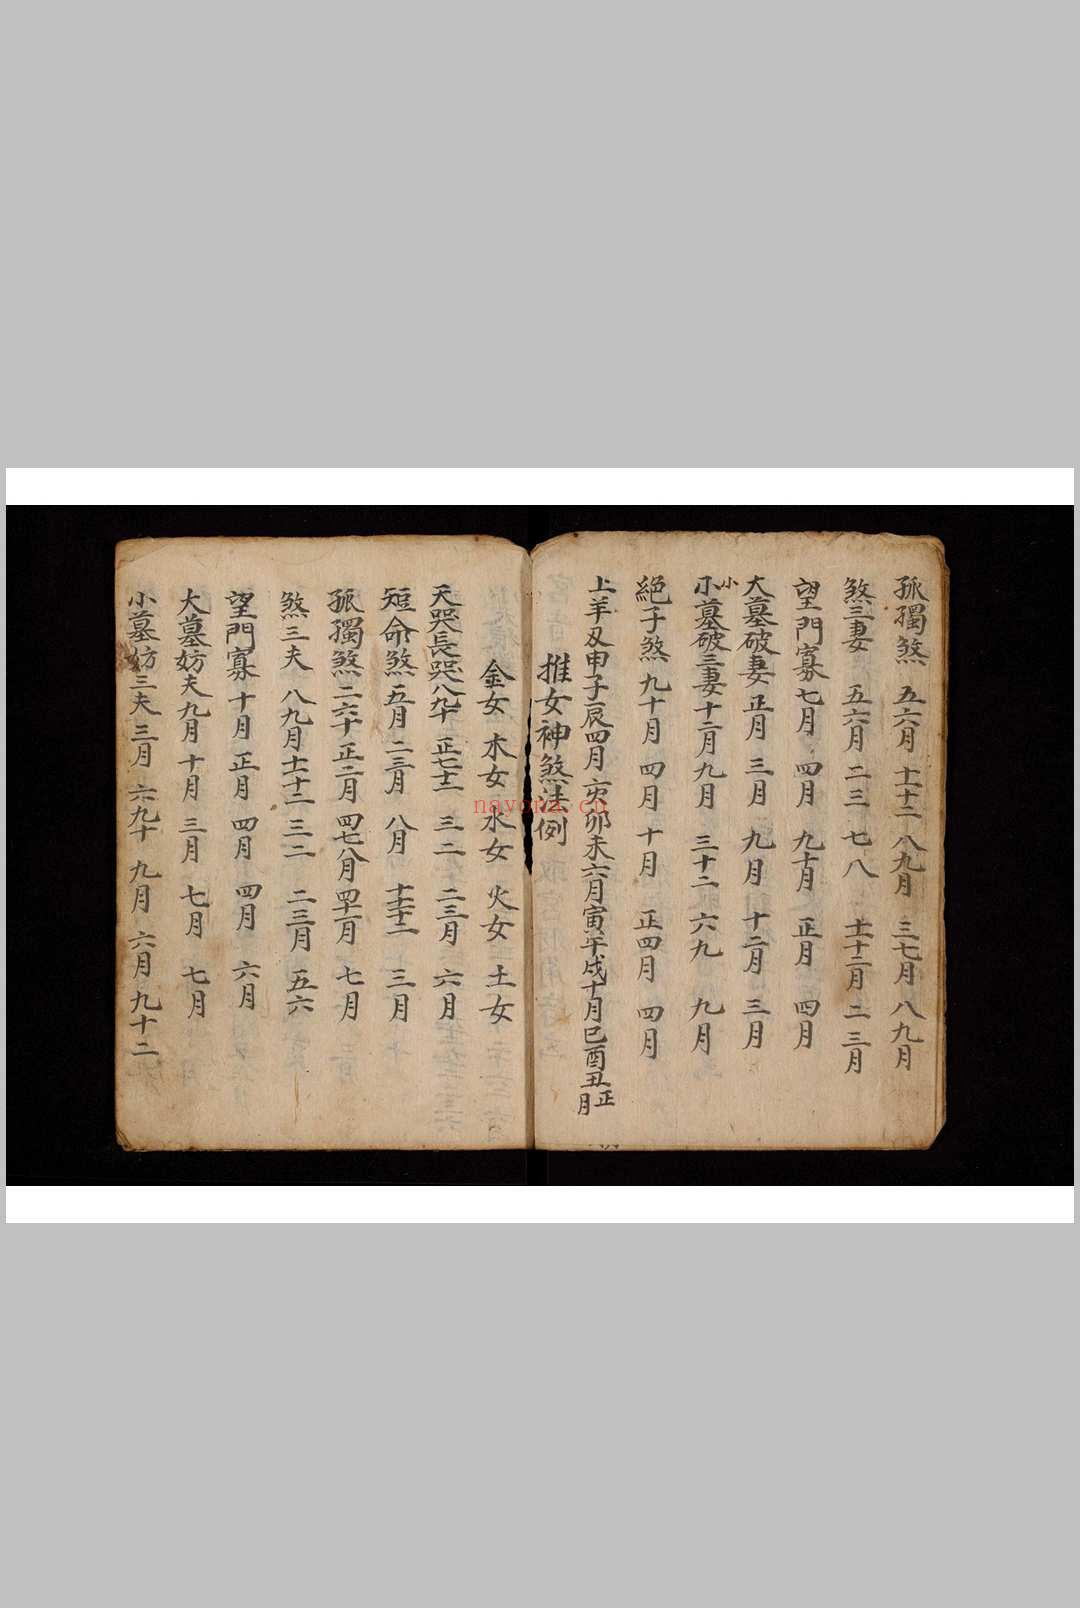 孤獨煞 五六月 十十二 八九月 三七月 八九月
煞三妻 五六月 二三 七八 十十二月 二三月
望門寡 七月 四月 九十月 正月 四月
大墓破妻 正月 三月 九月 十二月 三月
小墓破三妻 十二月 九月 三十二 六九 九月
絕子煞 九十月 四月 十月 正四月 四月
上羊刃申子辰四月亥卯未六月寅午戌十月巳酉丑正月
推女神煞法例
金女 木女 水女 火女 土女
天哭長哭 八九十 正七十二 三二 二三月 六月
短命煞 五月 二三月 八月 十十二 三月
孤獨煞 二六十 正二月 四七八月 七月
煞三夫 八九月 十十二 三二 二三月 五六
望門寡 十月 正月 四月 四月 六月
大墓妨夫 九月 十月 三月 七月 七月
小墓妨三夫 三月 六九十 九月 六月 九十二
nayona.cn